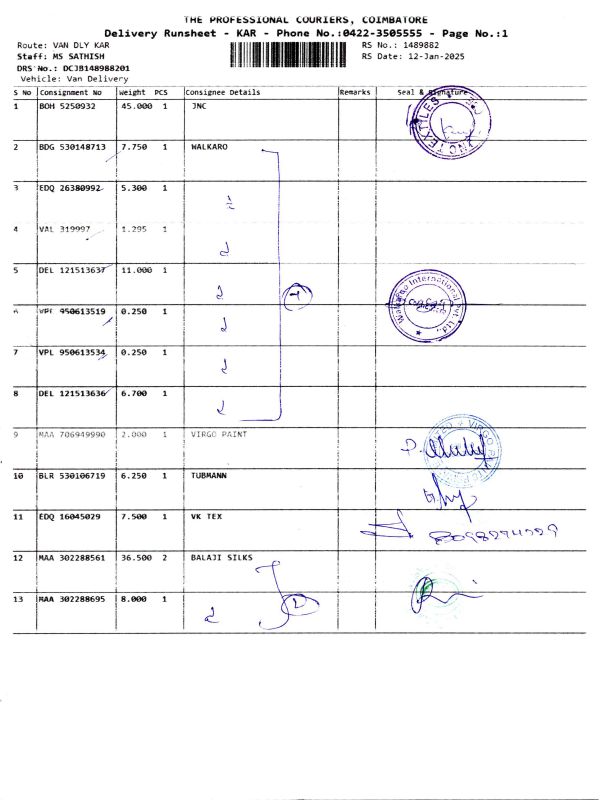 THE PROFESSIONAL COURIERS, COIMBATORE
Delivery Runsheet - KAR - Phone No.:0422-3505555 - Page No.:1
Route: VAN DLY KAR RS No.: 1489882
Staff: MS SATHISH RS Date: 12-Jan-2025
DRS No.: DCJB148988201
Vehicle: Van Delivery
S No Consignment No Weight PCS Consignee Details Remarks Seal & Signature
1 BOH 5250932 45.000 1 JNC
2 BDG 530148713 7.750 1 WALKARO
3 EDQ 26380992 5.300 1
4 VAL 319997 1.295 1
5 DEL 121513637 11.000 1
6 VPL 950613519 0.250 1
7 VPL 950613534 0.250 1
8 DEL 121513636 6.700 1
9 MAA 706949990 2.000 1 VIRGO PAINT
10 BLR 530106719 6.250 1 TUBMANN
11 EDQ 16045029 7.500 1 VK TEX
12 MAA 302288561 36.500 2 BALAJI SILKS
13 MAA 302288695 8.000 1
JNC TEXTILES
Walkaroo International Pvt. Ltd.,
VIRGO